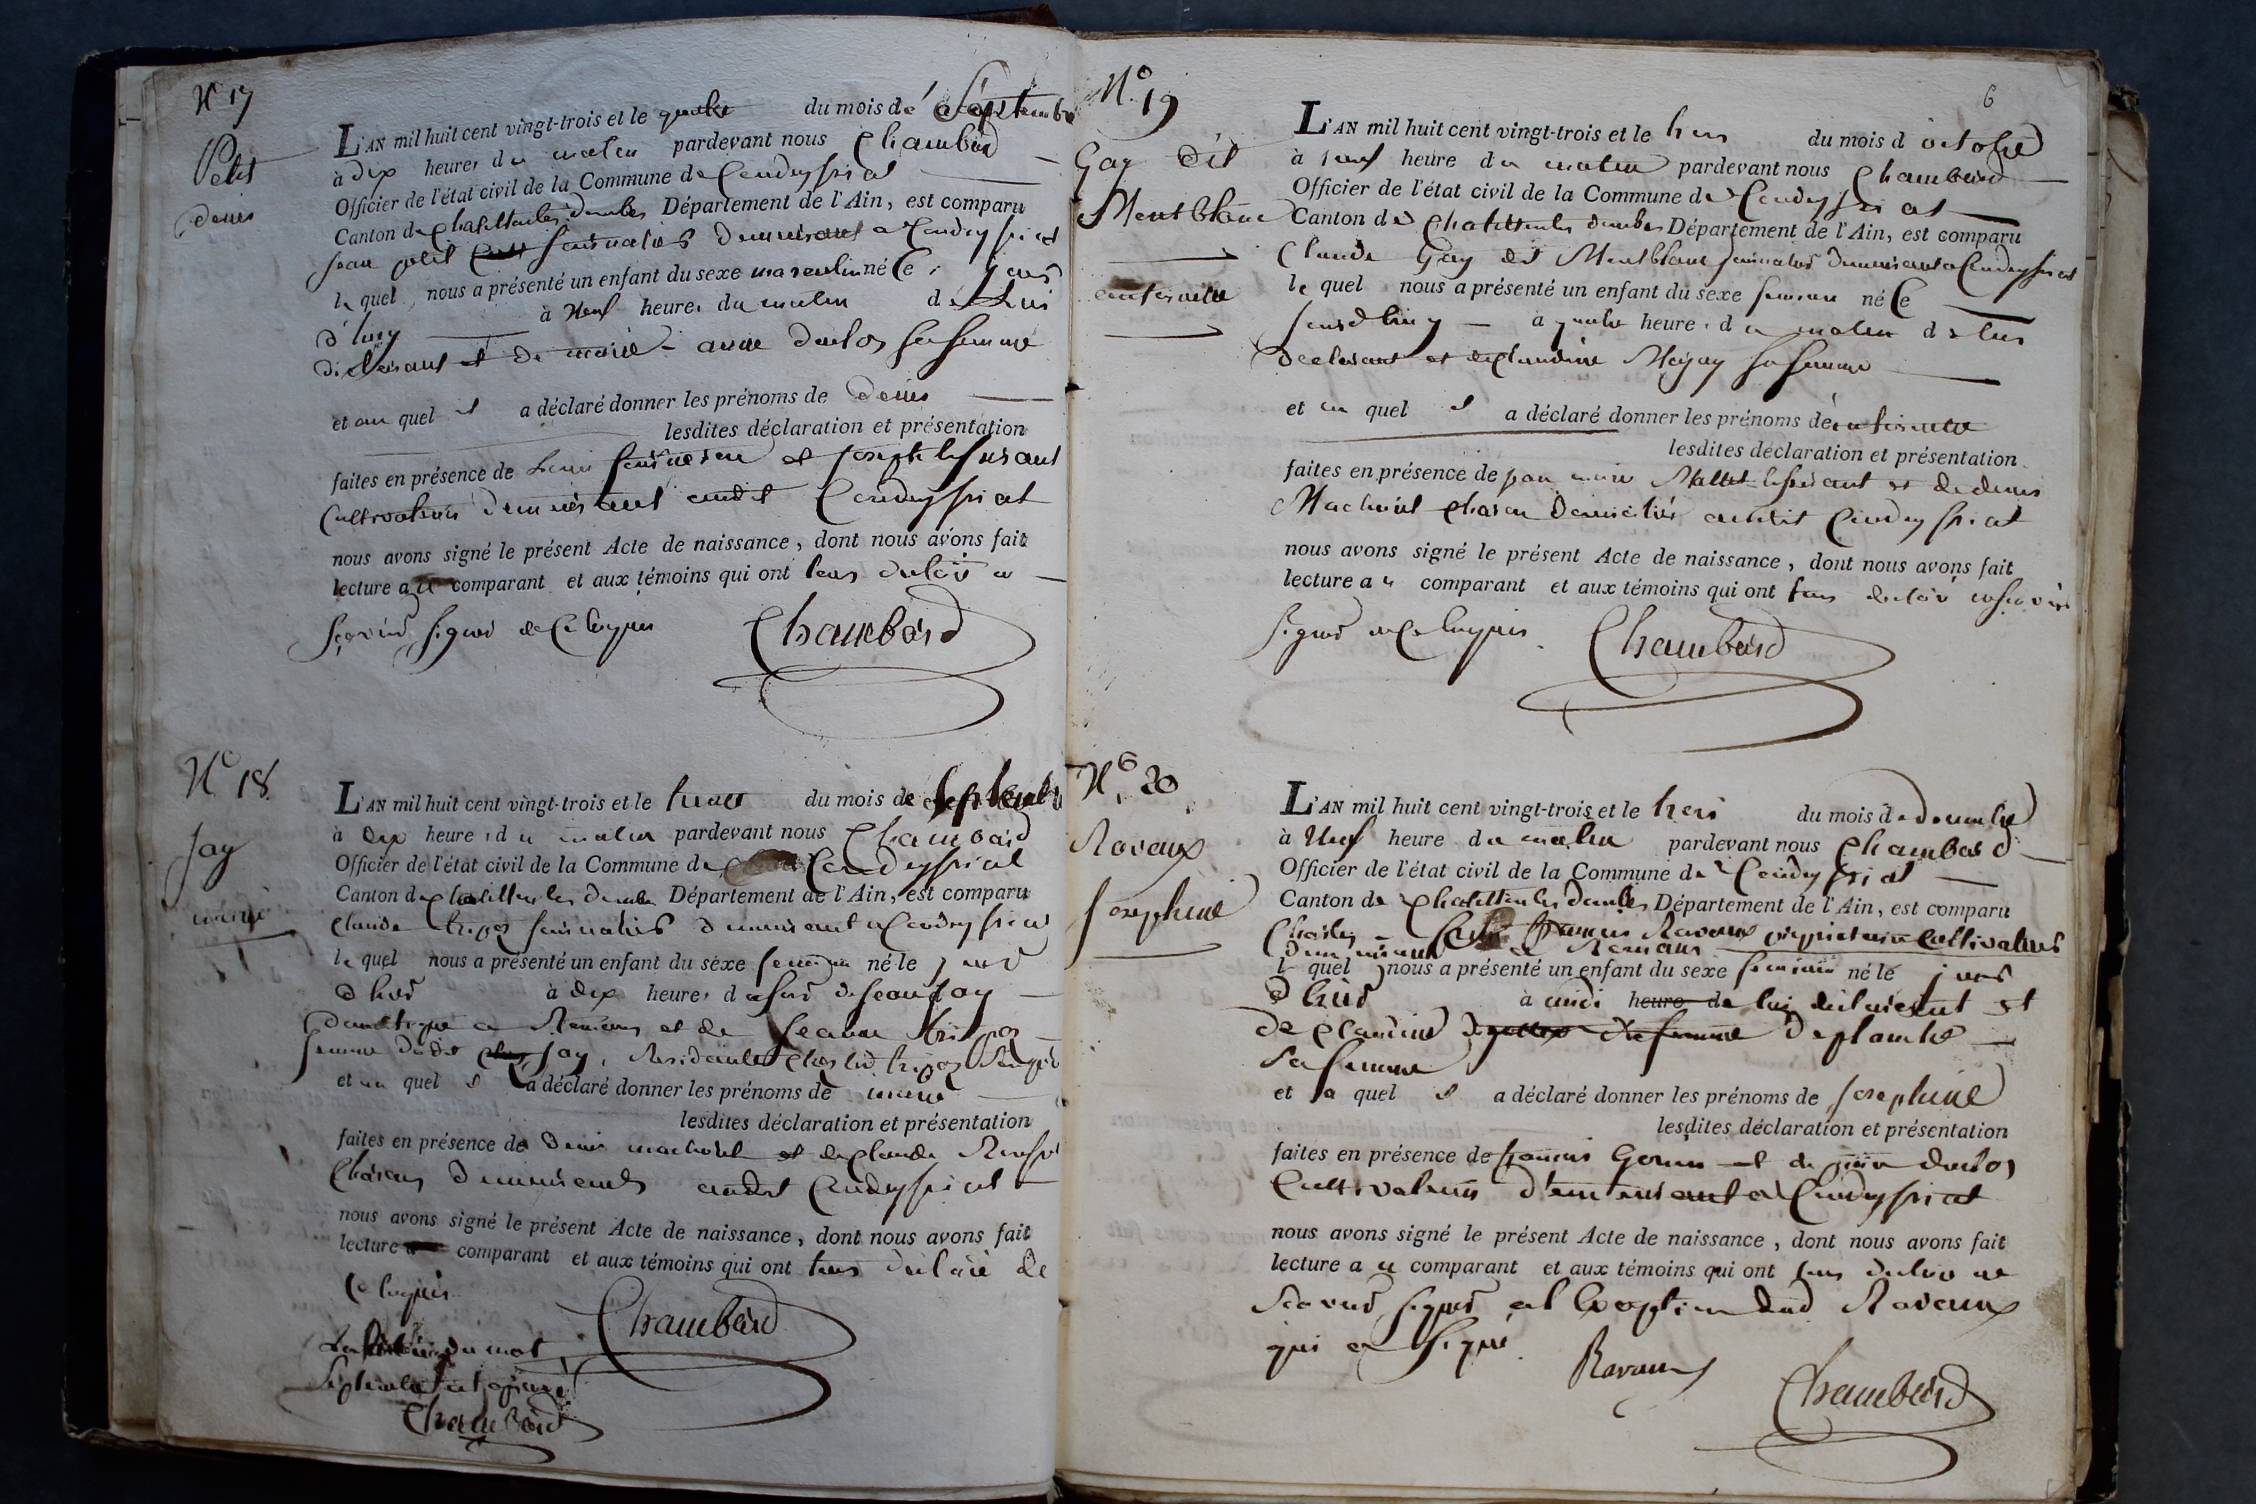 N° 17
Petit
denis
L'AN mil huit cent vingt-trois et le quatre du mois de Septembre
à dix heures du matin pardevant nous Chambard
Officier de l'état civil de la Commune de Condeyssiat
Canton de Chatillon les dombes Département de l'Ain, est comparu
jean petit journalier demeurant a Condeyssiat
le quel nous a présenté un enfant du sexe masculin né Ce jour
d'huy à neuf heures du matin de lui
declarant et de marie anne duclos sa femme
et au quel il a déclaré donner les prénoms de denis
lesdites déclaration et présentation
faites en présence de et joseph
Cultivateurs demeurant audit Condeyssiat
nous avons signé le présent Acte de naissance, dont nous avons fait
lecture au comparant et aux témoins qui ont tous déclaré ne
scavoir signer de Ce Enquis Chambard
N° 18
jay
marie
L'AN mil huit cent vingt-trois et le trente du mois de septembre
à dix heures du matin pardevant nous Chambard
Officier de l'état civil de la Commune de Condeyssiat
Canton de Chatillon les dombes Département de l'Ain, est comparu
claude journalier demeurant a Condeyssiat
le quel nous a présenté un enfant du sexe feminin né le jour
d'hier à dix heures du soir de jean jay
domestique a Romans et de jeanne
femme dudit jay,
et au quel il a déclaré donner les prénoms de marie
lesdites déclaration et présentation
faites en présence de denis machurat et de claude
Charon demeurants audit Condeyssiat
nous avons signé le présent Acte de naissance, dont nous avons fait
lecture comparant et aux témoins qui ont tous déclaré de
Ce Enquis Chambard
du mot
Septembre approuvé
Chambard
6
N° 19
Gay dit
Montblanc
antoinette
L'AN mil huit cent vingt-trois et le trois du mois d'octobre
à neuf heure du matin pardevant nous Chambard
Officier de l'état civil de la Commune de Condeyssiat
Canton de Chatillon les dombes Département de l'Ain, est comparu
Claude Gay dit Montblanc journalier demeurant a Condeyssiat
le quel nous a présenté un enfant du sexe feminin né Ce
jourd'huy à quatre heure du matin de lui
declarant et de claudine sa femme
et au quel il a déclaré donner les prénoms de antoinette
lesdites déclaration et présentation
faites en présence de jean marie et de denis
Machurat charon domiciliés audit Condeyssiat
nous avons signé le présent Acte de naissance, dont nous avons fait
lecture au comparant et aux témoins qui ont tous déclaré ne scavoir
signer de Ce Enquis. Chambard
N° 20
Ravaux
josephine
L'AN mil huit cent vingt-trois et le trois du mois de decembre
à neuf heure du matin pardevant nous Chambard
Officier de l'état civil de la Commune de Condeyssiat
Canton de Chatillon les dombes Département de l'Ain, est comparu
Charles francois Ravaux proprietaire Cultivateur
demeurant a Romans
le quel nous a présenté un enfant du sexe feminin né le jour
d'hier à midi heure de lui déclarant et
de claudine sa femme deplanche
sa femme
et a quel il a déclaré donner les prénoms de josephine
lesdites déclaration et présentation
faites en présence de francois et de duclos
Cultivateurs demeurant a Condeyssiat
nous avons signé le présent Acte de naissance, dont nous avons fait
lecture au comparant et aux témoins qui ont tous déclaré ne
scavoir signer a l'exception dud Ravaux
qui a signé. Ravaux Chambard